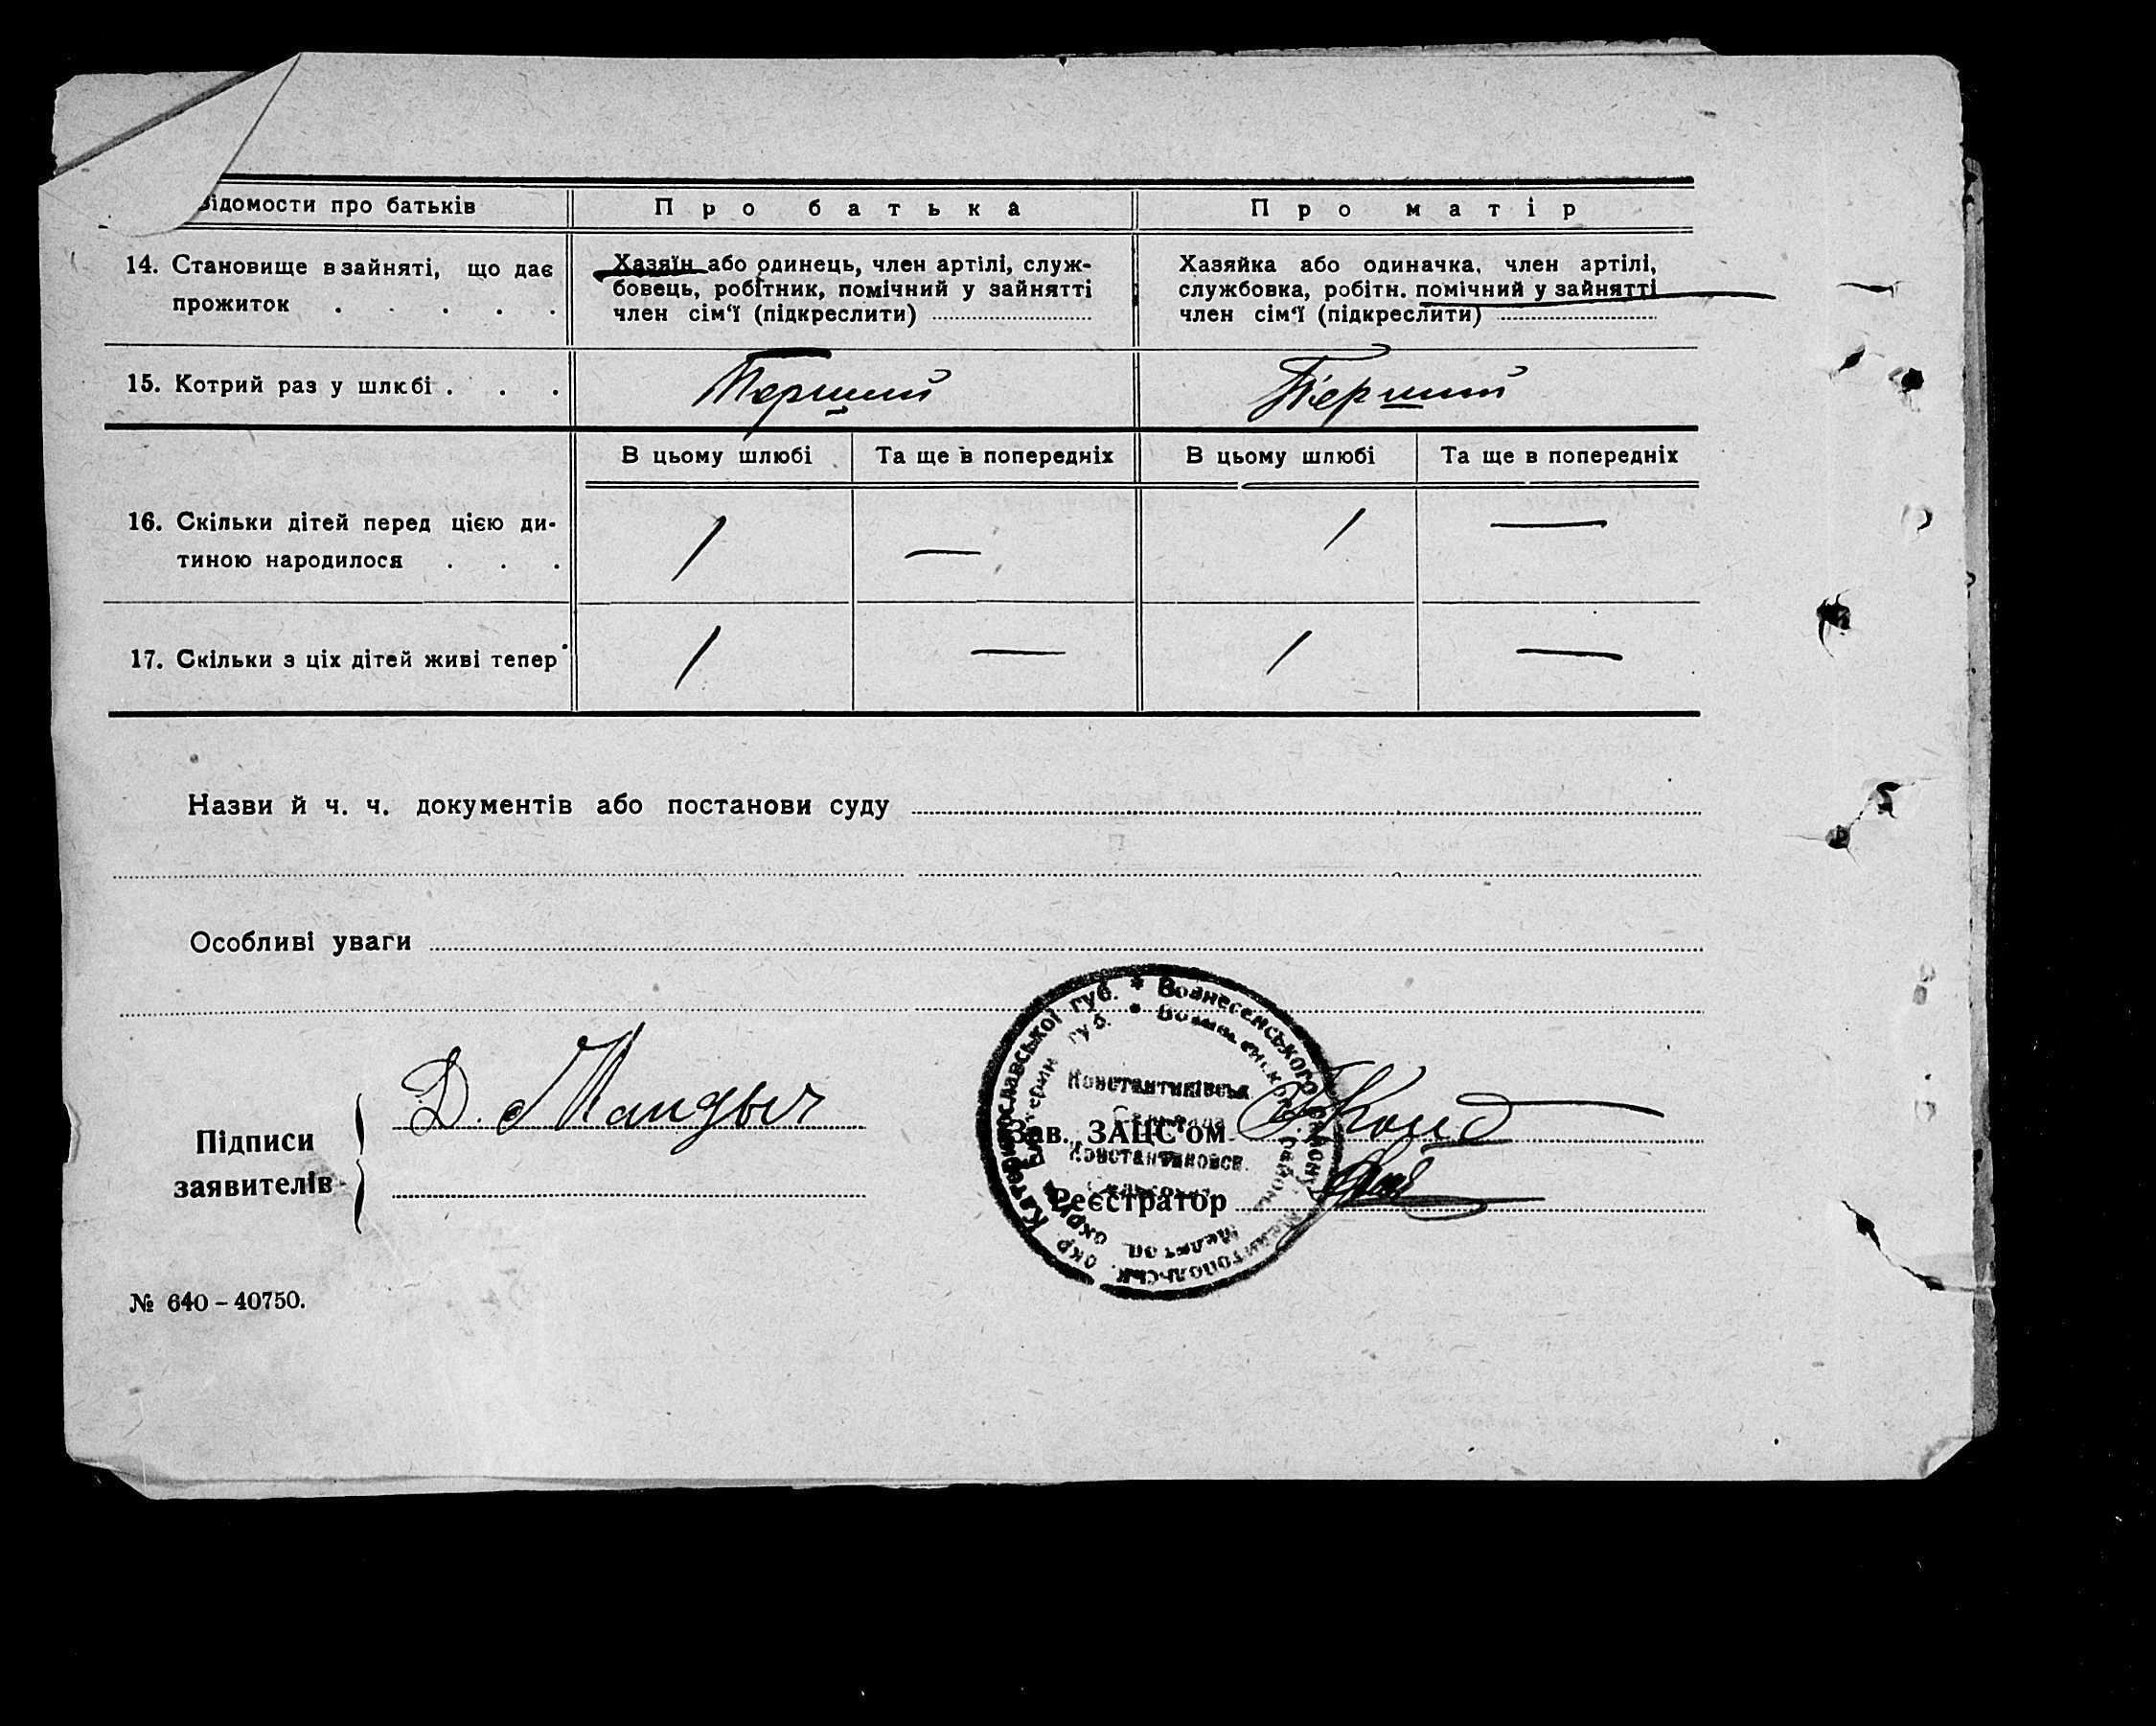 Відомости про батьків
Про батька
Про матір
14. Становище в зайняті, що дає
прожиток . . . . .
Хазяїн або одинець, член артілі, служ-
бовець, робітник, помічний у зайнятті
член сім'ї (підкреслити)
Хазяйка або одиначка, член артілі,
службовка, робітн. помічний у зайнятті
член сім'ї (підкреслити)
15. Котрий раз у шлюбі . . .
Перший
Перший
В цьому шлюбі
Та ще в попередніх
В цьому шлюбі
Та ще в попередніх
16. Скільки дітей перед цією ди-
тиною народилося . . .
1
—
1
—
17. Скільки з ціх дітей живі тепер
1
—
1
—
Назви й ч. ч. документів або постанови суду
Особливі уваги
Підписи
заявителів
Д.
Зав. ЗАЦС'ом
Реєстратор
окр. Катеринославської губ. * Вознесенського району Мелитопольськ.
Константинівськ.
Константиновск.
№ 640 – 40750.